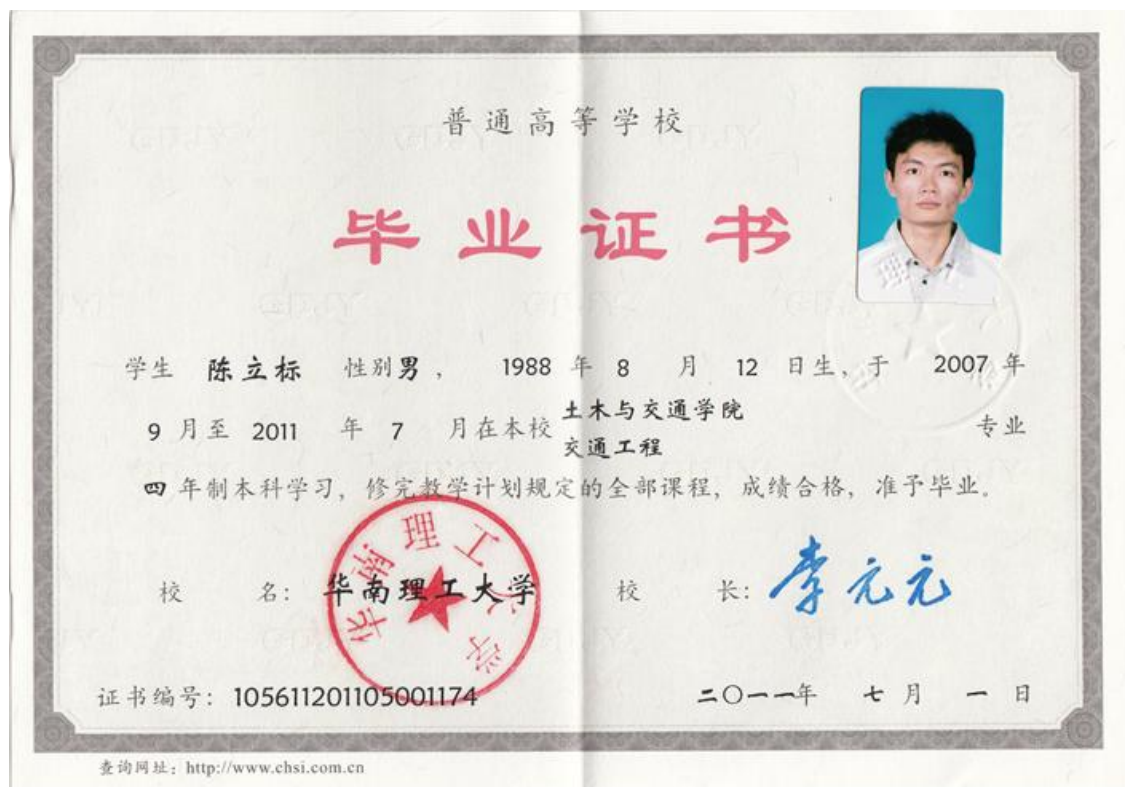 普通高等学校
毕业证书
学生 陈立标 性别男， 1988 年 8 月 12 日生，于 2007 年
9 月至 2011 年 7 月在本校 土木与交通学院 交通工程 专业
四 年制本科学习，修完教学计划规定的全部课程，成绩合格，准予毕业。
校 名：华南理工大学 校 长：李元元
华南理工大学
证书编号：105611201105001174 二〇一一年 七 月 一 日
查询网址：http://www.chsi.com.cn